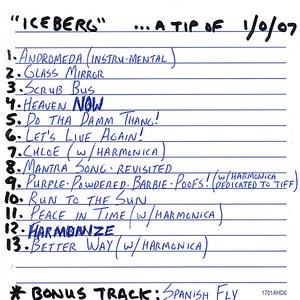 "ICEBERG" ...A TIP OF 1/0/07
1. ANDROMEDA (INSTRU-MENTAL)
2. GLASS MIRROR
3. SCRUB BUS
4. HEAVEN NOW
5. DO THA DAMM THANG!
6. LET'S LIVE AGAIN!
7. CHLOE (W/HARMONICA)
8. MANTRA SONG·REVISITED
9. PURPLE·POWDERED·BARBIE·POOFS! (W/HARMONICA DEDICATED TO TIFF)
10. RUN TO THE SUN
11. PEACE IN TIME (W/HARMONICA)
12. HARMBONZE
13. BETTER WAY (W/HARMONICA)
* BONUS TRACK: SPANISH FLY
1701AHD6